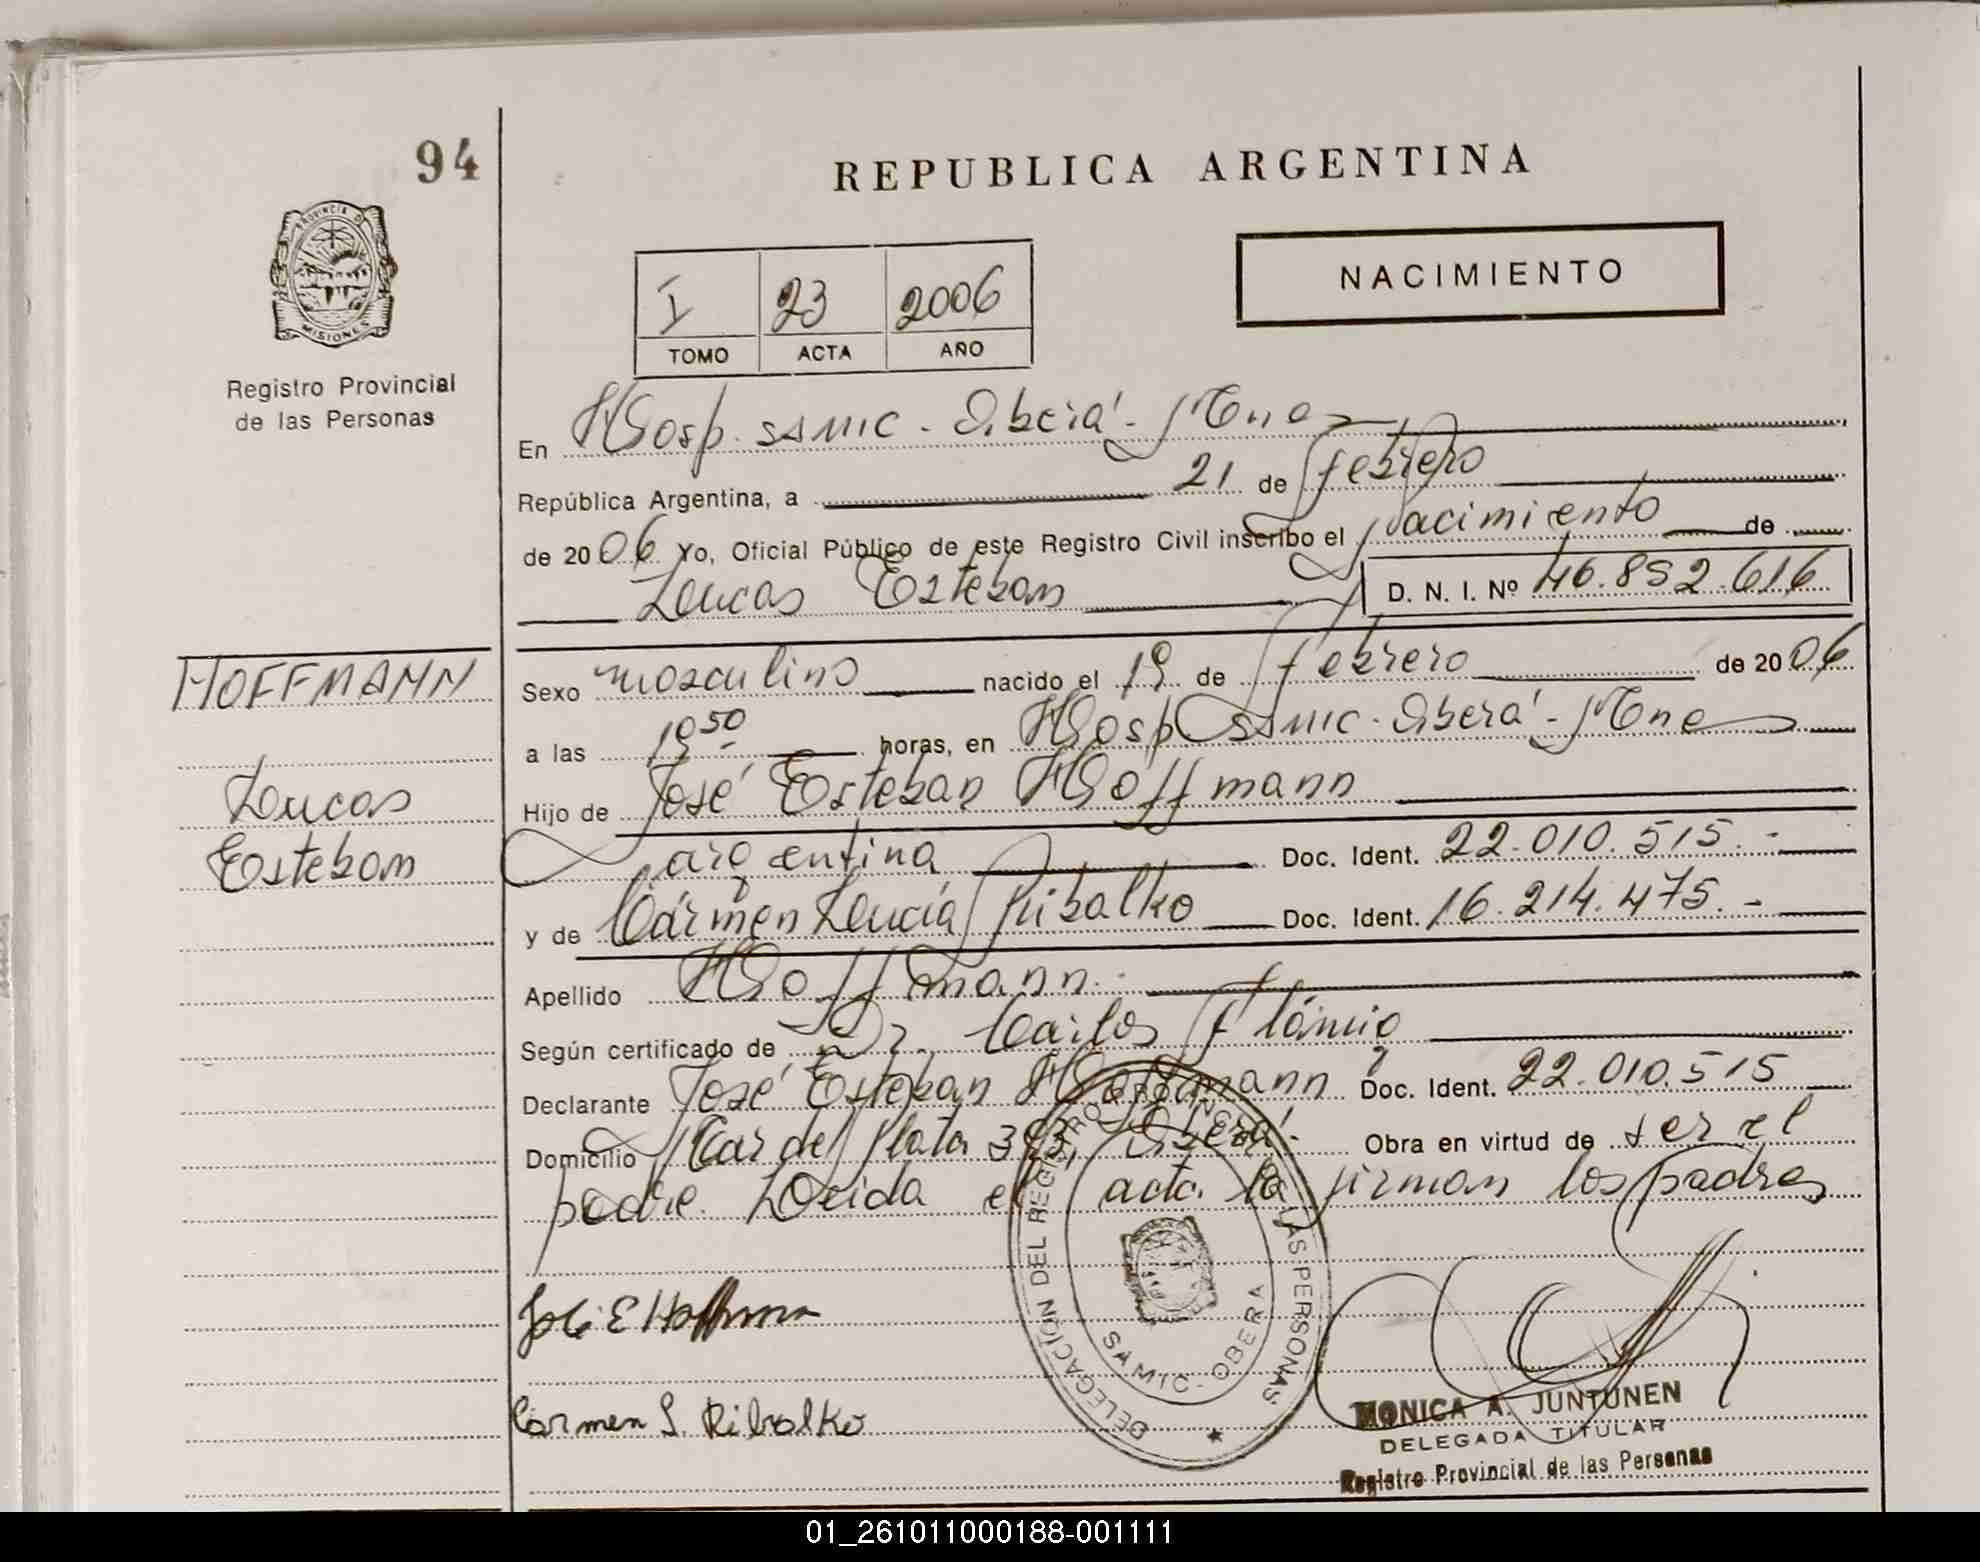 94
REPUBLICA ARGENTINA
PROVINCIA D MISIONES
Registro Provincial
de las Personas
NACIMIENTO
I 23 2006
TOMO ACTA AÑO
En Hosp. SAMIC - Oberá - Mnes
República Argentina, a 21 de febrero
de 2006 Yo, Oficial Público de este Registro Civil inscribo el nacimiento de
Lucas Esteban D. N. I. Nº 46.852.616
HOFFMANN
Lucas
Esteban
Sexo masculino nacido el 19 de febrero de 2006
a las 19 50 horas, en Hosp SAMIC - Oberá - Mnes
Hijo de José Esteban Hoffmann
argentina Doc. Ident. 22.010.515.-
y de Carmen Lucía Ribalko Doc. Ident. 16.214.475.-
Apellido Hoffmann.
Según certificado de Dr. Carlos
Declarante José Esteban Hoffmann Doc. Ident. 22.010.515
Domicilio Mar del Plata 393, Oberá.- Obra en virtud de ser el
padre. Leida el acta la firman los padres
José E Hoffmann
Carmen L. Ribalko
DELEGACIÓN DEL REGISTRO PROVINCIAL DE LAS PERSONAS
SAMIC - OBERA
MONICA A. JUNTUNEN
DELEGADA TITULAR
Registro Provincial de las Personas
01_261011000188-001111